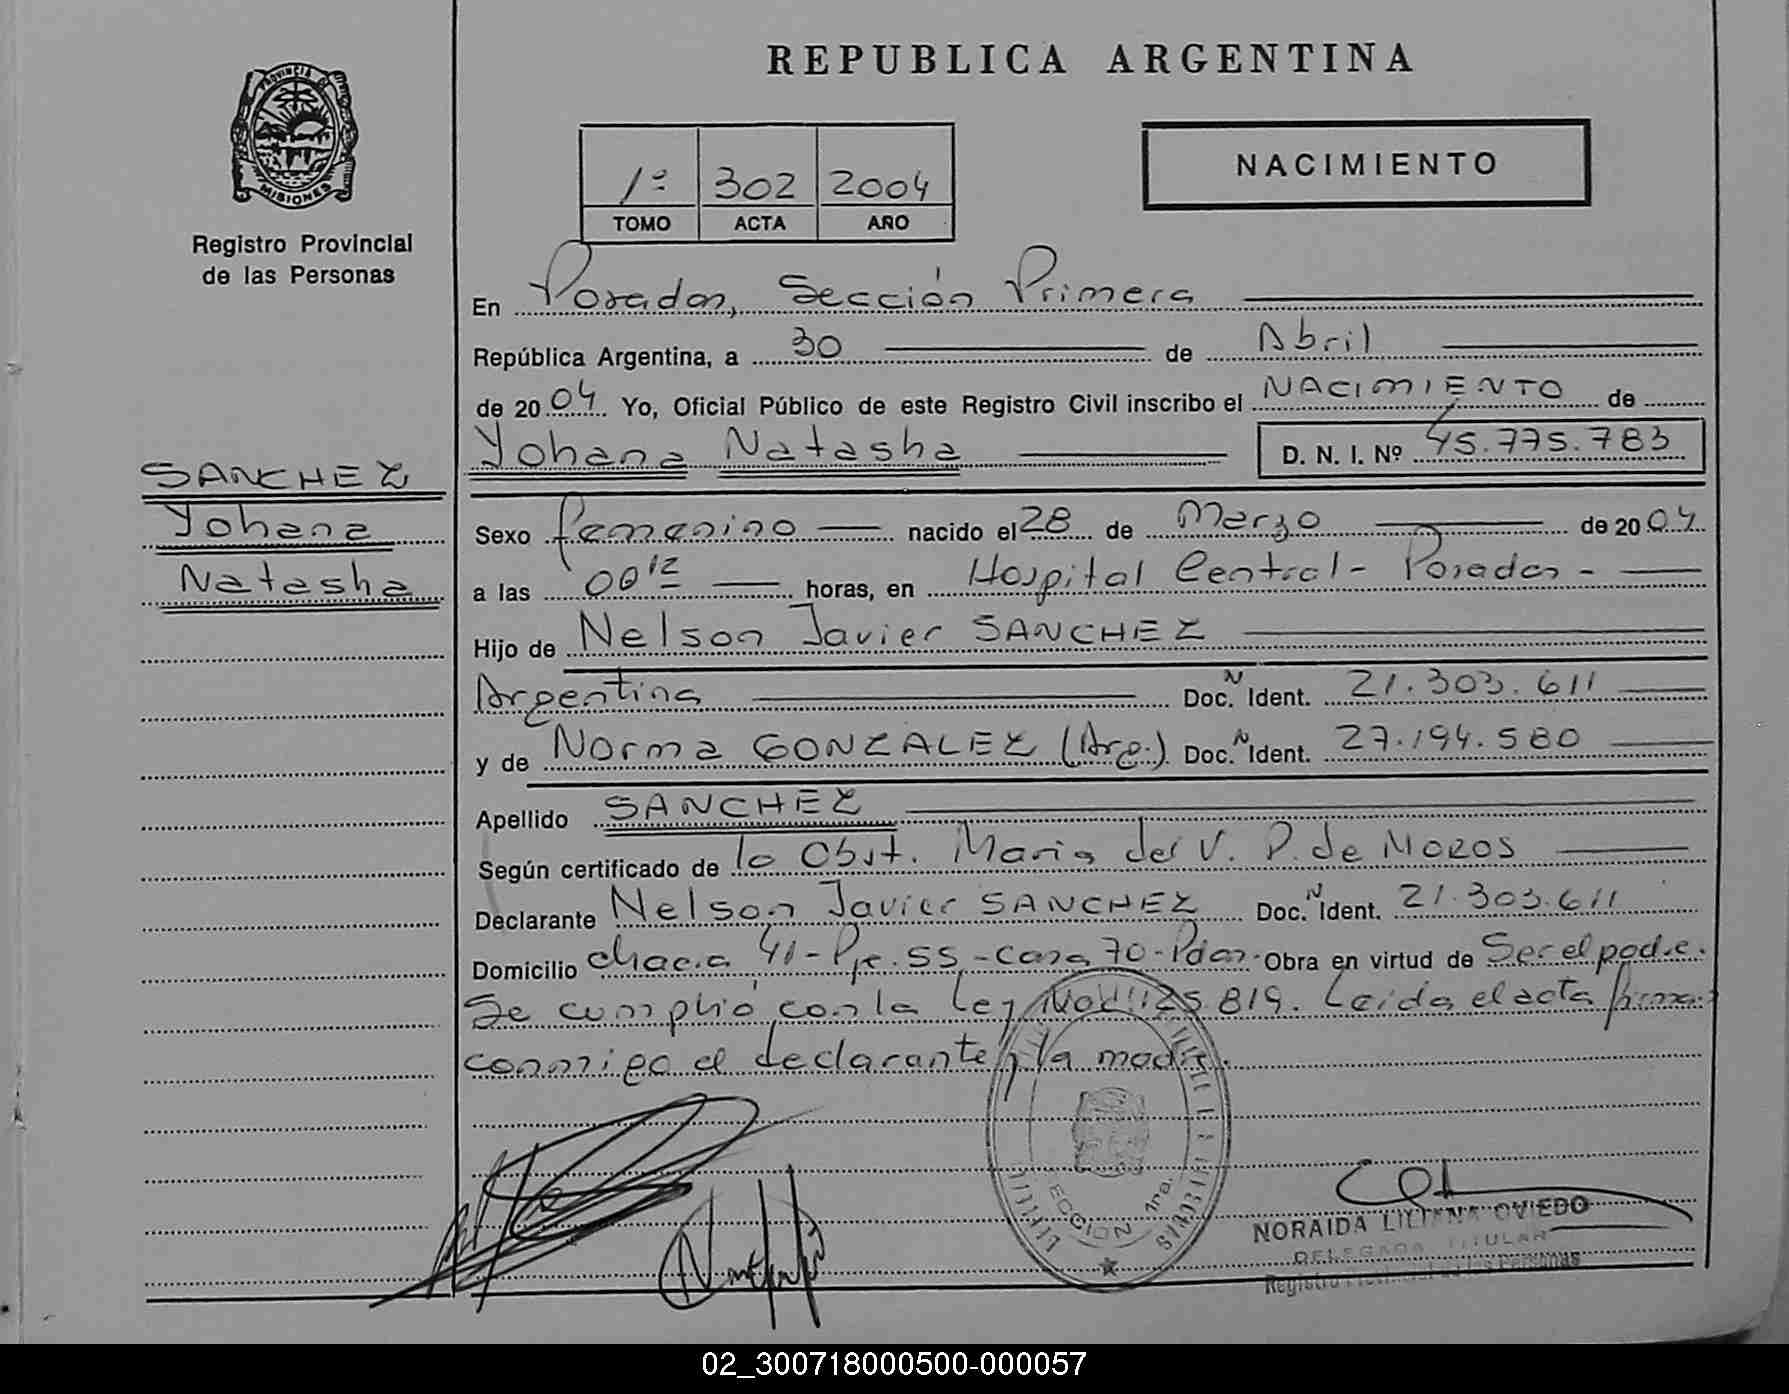 REPUBLICA ARGENTINA
PROVINCIA DE
MISIONES
Registro Provincial
de las Personas
1º 302 2004
TOMO ACTA AÑO
NACIMIENTO
En Posadas, Sección Primera
República Argentina, a 30 de Abril
de 2004 Yo, Oficial Público de este Registro Civil inscribo el NACIMIENTO de
Yohana Natasha D. N. I. Nº 45.775.783
SANCHEZ
Yohana
Natasha
Sexo femenino nacido el 28 de Marzo de 2004
a las 00 12 horas, en Hospital Central - Posadas -
Hijo de Nelson Javier SANCHEZ
Argentina Doc. N Ident. 21.303.611
y de Norma GONZALEZ (Arg.) Doc. N Ident. 27.194.580
Apellido SANCHEZ
Según certificado de la Obst. Maria del V. P. de MOZOS
Declarante Nelson Javier SANCHEZ Doc. N Ident. 21.303.611
Domicilio chacra 41 - Pje. 55 - casa 70 - Pdas. Obra en virtud de Ser el padre.
Se cumplió con la Ley Nac. 25.819. Leída el acta firma
conmigo el declarante y la madre.
SECCION 1ra.
NORAIDA LILIANA OVIEDO
DELEGADA TITULAR
Registro Provincial de las Personas
02_300718000500-000057